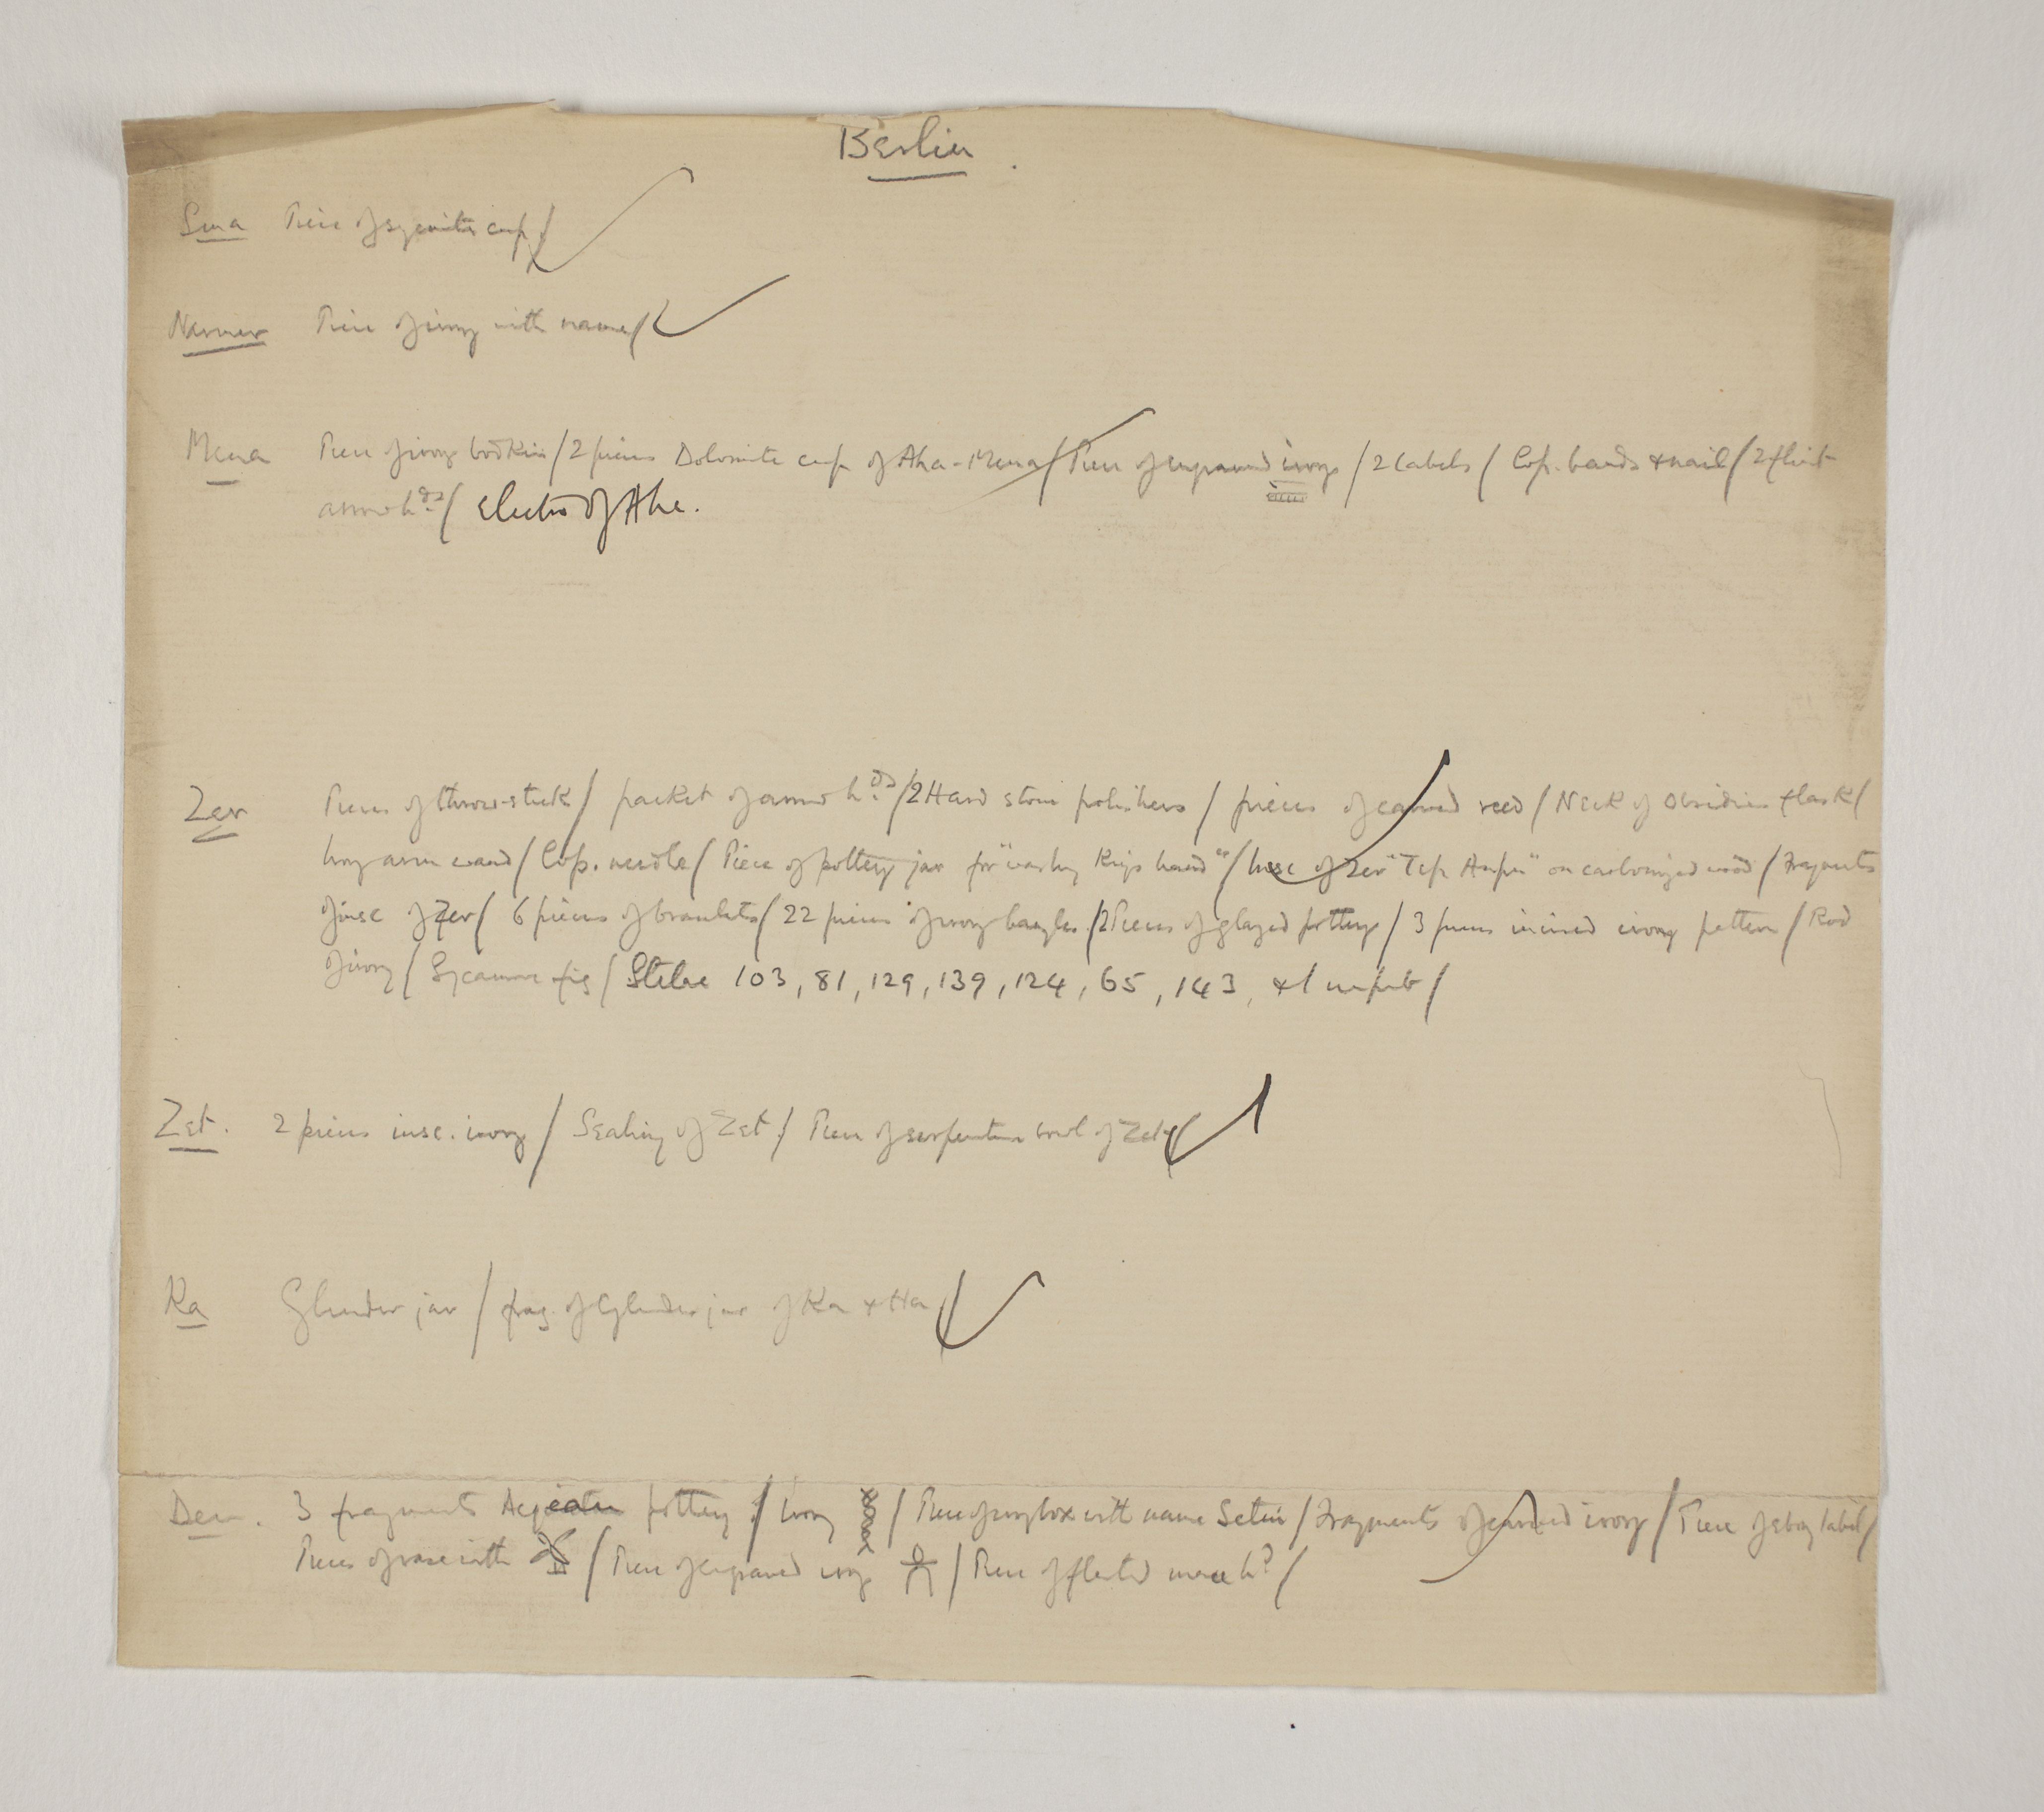 Berlin
Sma Piece of syenite cup /
Narmer Piece of ivory with name /
Mena Piece of ivory bodkin / 2 pieces Dolomite cup of Aha-Mena / Piece of engraved ivory / 2 labels / Cop. bands & nail / 2 flint
arrow hds / Electro of Aha.
Zer Pieces of throw-stick / packet of arrow hds / 2 Hard stone polishers / pieces of carved reed / Neck of Obsidian flask /
Ivory arm wand / Cop. needle / Piece of pottery jar for "washing Kings hand" / Insc of Zer "Tep Anpu" on carbonized wood / Fragments
of insc of Zer / 6 pieces of bracelets / 22 pieces of ivory bangles / 2 Pieces of glazed pottery / 3 pieces incised ivory pattern / Rod
of ivory / Sycamore fig / Stelae 103, 81, 129, 139, 124, 65, 143, & 1 unpub /
Zet. 2 pieces insc. ivory / Sealing of Zet / Piece of serpentine bowl of Zet /
Ka Cylinder jar / frag. of Cylinder jar of Ka & Ha /
Den. 3 fragments Aegean pottery / Ivory / Piece of ivory box with name Setui / Fragments of carved ivory / Piece of ebony label /
Pieces of vase with / Piece of engraved ivory / Piece of fluted /